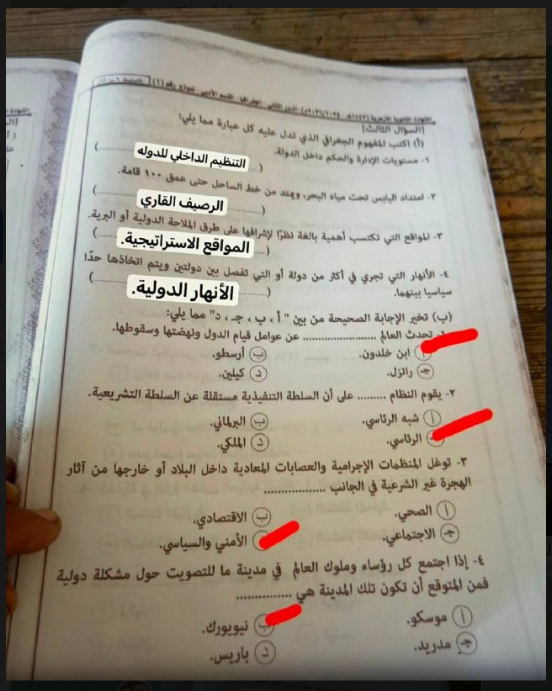 الشهادة الثانوية الأزهرية (١٤٤٦هـ - ٢٠٢٤/٢٠٢٥م) - الدور الثاني - الجغرافيا - القسم الأدبي - نموذج رقم (٦)
[السؤال الثالث]
(أ) اكتب المفهوم الجغرافي الذي تدل عليه كل عبارة مما يلي:
١- مستويات الإدارة والحكم داخل الدولة.
(التنظيم الداخلي للدوله)
٢- امتداد اليابس تحت مياه البحر، ويمتد من خط الساحل حتى عمق ١٠٠ قامة.
(الرصيف القاري)
٣- المواقع التي تكتسب أهمية بالغة نظرًا لإشرافها على طرق الملاحة الدولية أو البرية.
(المواقع الاستراتيجية.)
٤- الأنهار التي تجري في أكثر من دولة أو التي تفصل بين دولتين ويتم اتخاذها حدًا
سياسيا بينهما.
(الأنهار الدولية.)
(ب) تخير الإجابة الصحيحة من بين "أ ، ب ، جـ ، د" مما يلي:
تحدث العالم .................... عن عوامل قيام الدول ونهضتها وسقوطها.
أ ابن خلدون. ب أرسطو.
جـ راتزل. د كيلين.
٢- يقوم النظام ......... على أن السلطة التنفيذية مستقلة عن السلطة التشريعية.
أ شبه الرئاسي. ب البرلماني.
الرئاسي. د الملكي.
٣- توغل المنظمات الإجرامية والعصابات المعادية داخل البلاد أو خارجها من آثار
الهجرة غير الشرعية في الجانب .................
أ الصحي. ب الاقتصادي.
جـ الاجتماعي. الأمني والسياسي.
٤- إذا اجتمع كل رؤساء وملوك العالم في مدينة ما للتصويت حول مشكلة دولية
فمن المتوقع أن تكون تلك المدينة هي ..............
أ موسكو. ب نيويورك.
جـ مدريد. د باريس.